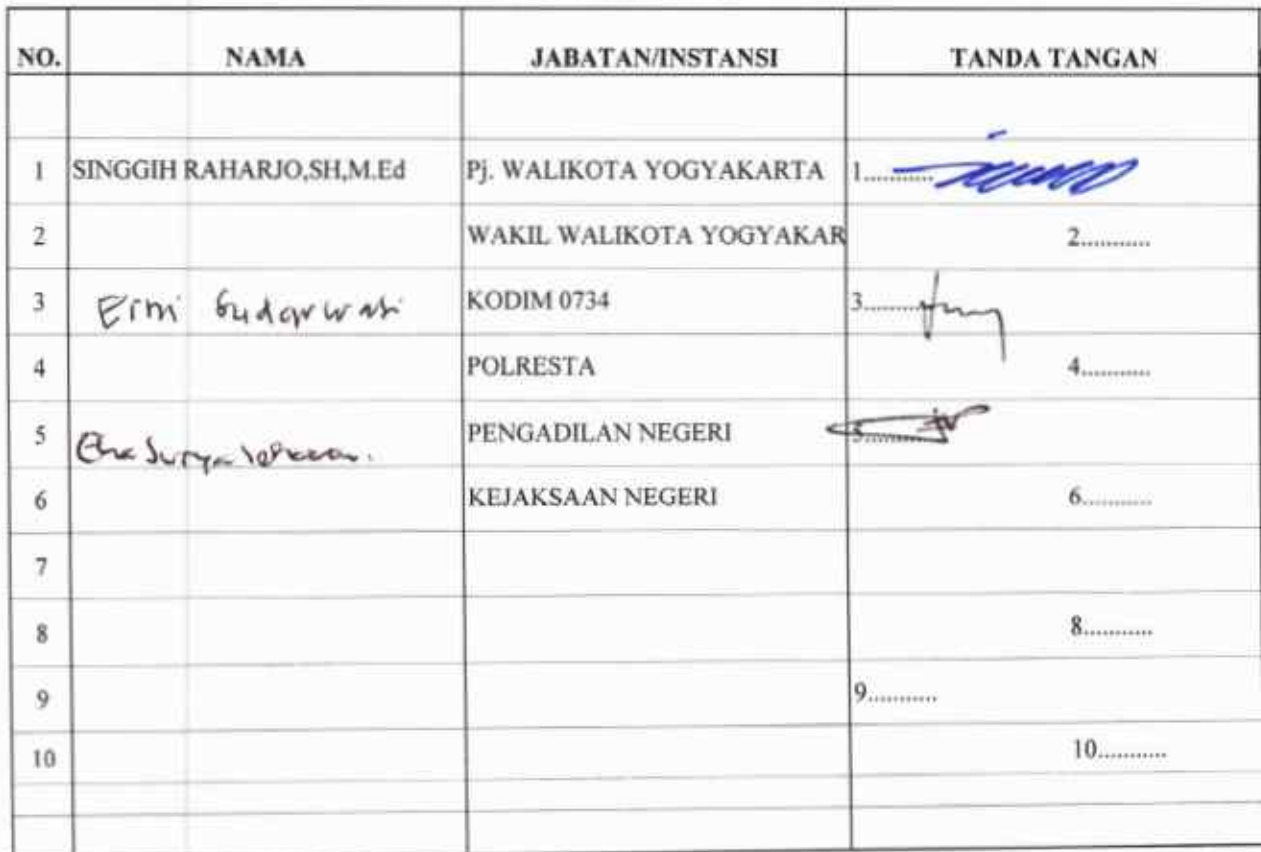 NO. NAMA JABATAN/INSTANSI TANDA TANGAN
1 SINGGIH RAHARJO,SH,M.Ed Pj. WALIKOTA YOGYAKARTA 1...........
2 WAKIL WALIKOTA YOGYAKAR 2...........
3 Erni KODIM 0734 3...........
4 POLRESTA 4...........
5 PENGADILAN NEGERI 5...........
6 KEJAKSAAN NEGERI 6...........
7
8 8...........
9 9...........
10 10...........